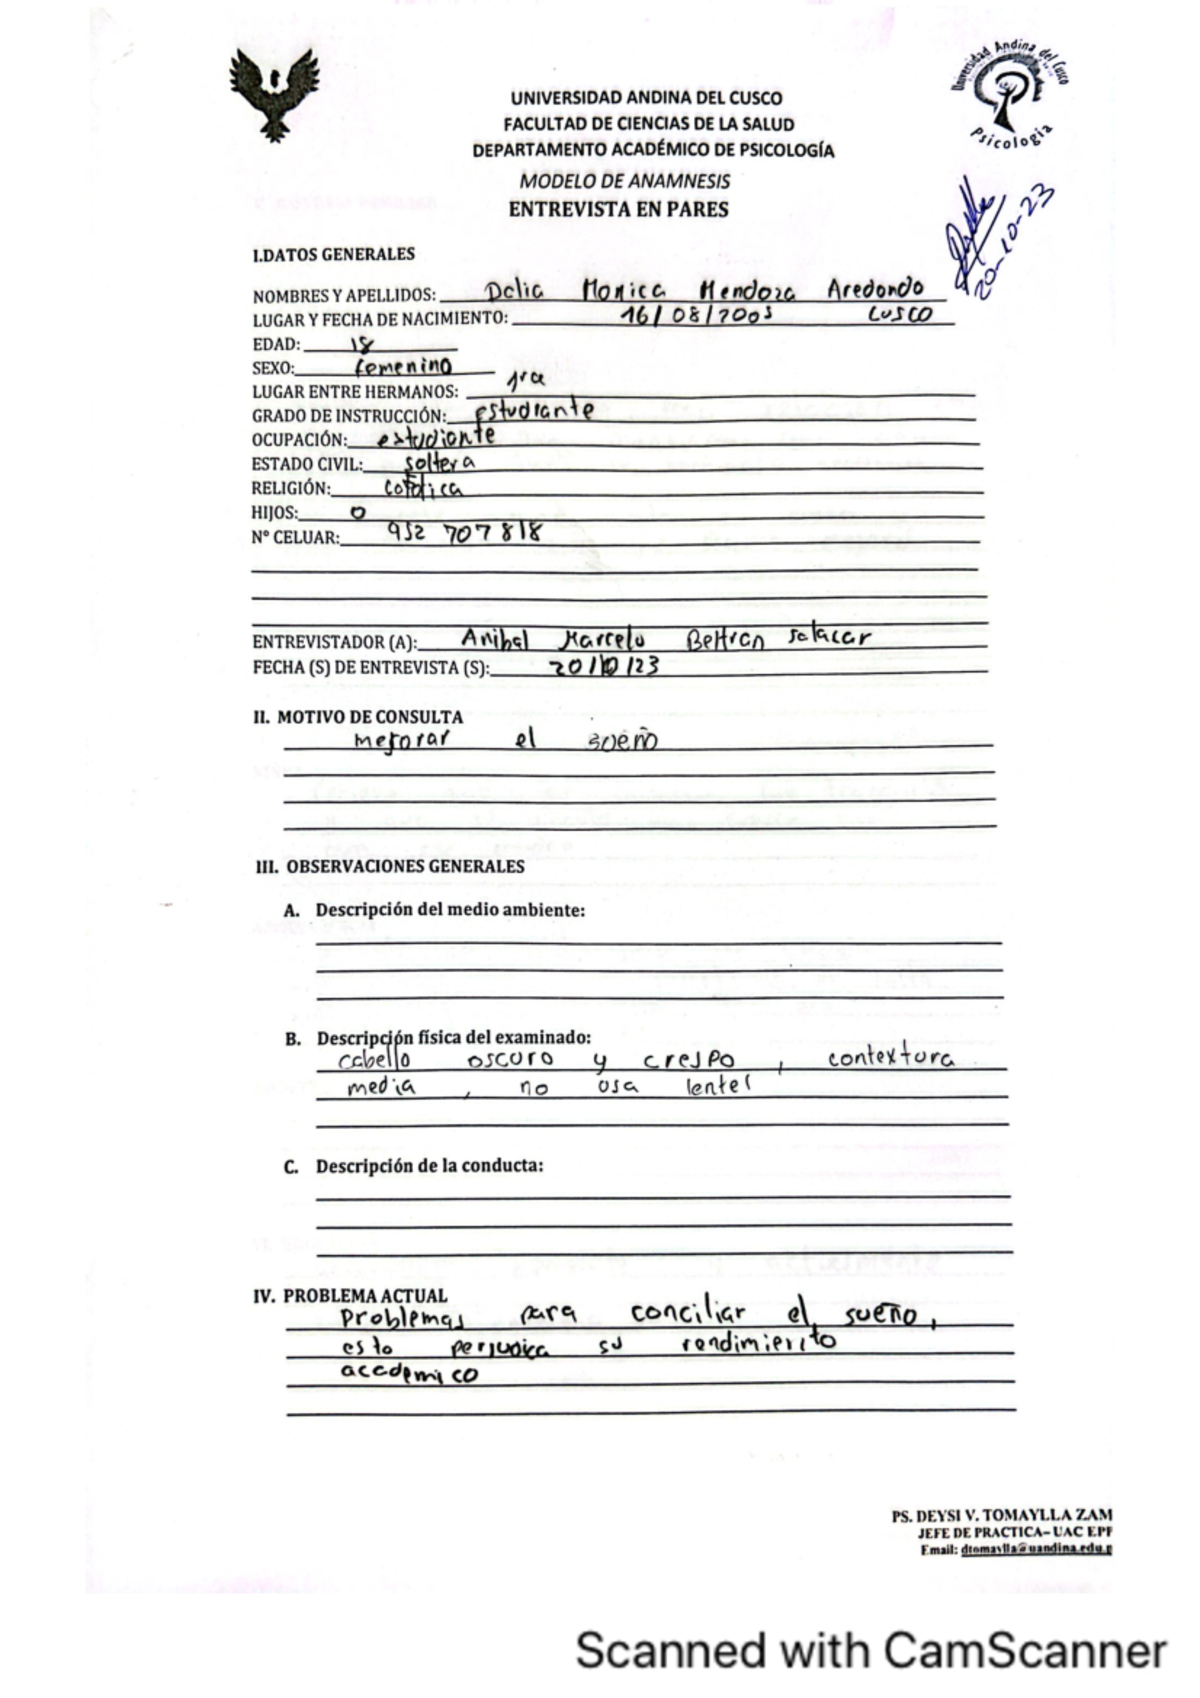 Universidad Andina del Cusco
Psicología
UNIVERSIDAD ANDINA DEL CUSCO
FACULTAD DE CIENCIAS DE LA SALUD
DEPARTAMENTO ACADÉMICO DE PSICOLOGÍA
MODELO DE ANAMNESIS
ENTREVISTA EN PARES
20-10-23
I.DATOS GENERALES
NOMBRES Y APELLIDOS: Delia Monica Mendoza Aredondo
LUGAR Y FECHA DE NACIMIENTO: 16/08/2005 cusco
EDAD: 18
SEXO: femenino
LUGAR ENTRE HERMANOS: 1ra
GRADO DE INSTRUCCIÓN: estudiante
OCUPACIÓN: estudiante
ESTADO CIVIL: soltera
RELIGIÓN: catolica
HIJOS: 0
N° CELUAR: 952 707 818
ENTREVISTADOR (A): Anibal Marcelo Beltran Salacar
FECHA (S) DE ENTREVISTA (S): 20/10/23
II. MOTIVO DE CONSULTA
mejorar el sueño
III. OBSERVACIONES GENERALES
A. Descripción del medio ambiente:
B. Descripción física del examinado:
cabello oscuro y crespo, contextura
media, no usa lentes
C. Descripción de la conducta:
IV. PROBLEMA ACTUAL
Problemas para conciliar el sueño,
esto perjudica su rendimiento
academico
PS. DEYSI V. TOMAYLLA ZAM
JEFE DE PRACTICA– UAC EPF
Email: dtomaylla@uandina.edu.p
Scanned with CamScanner